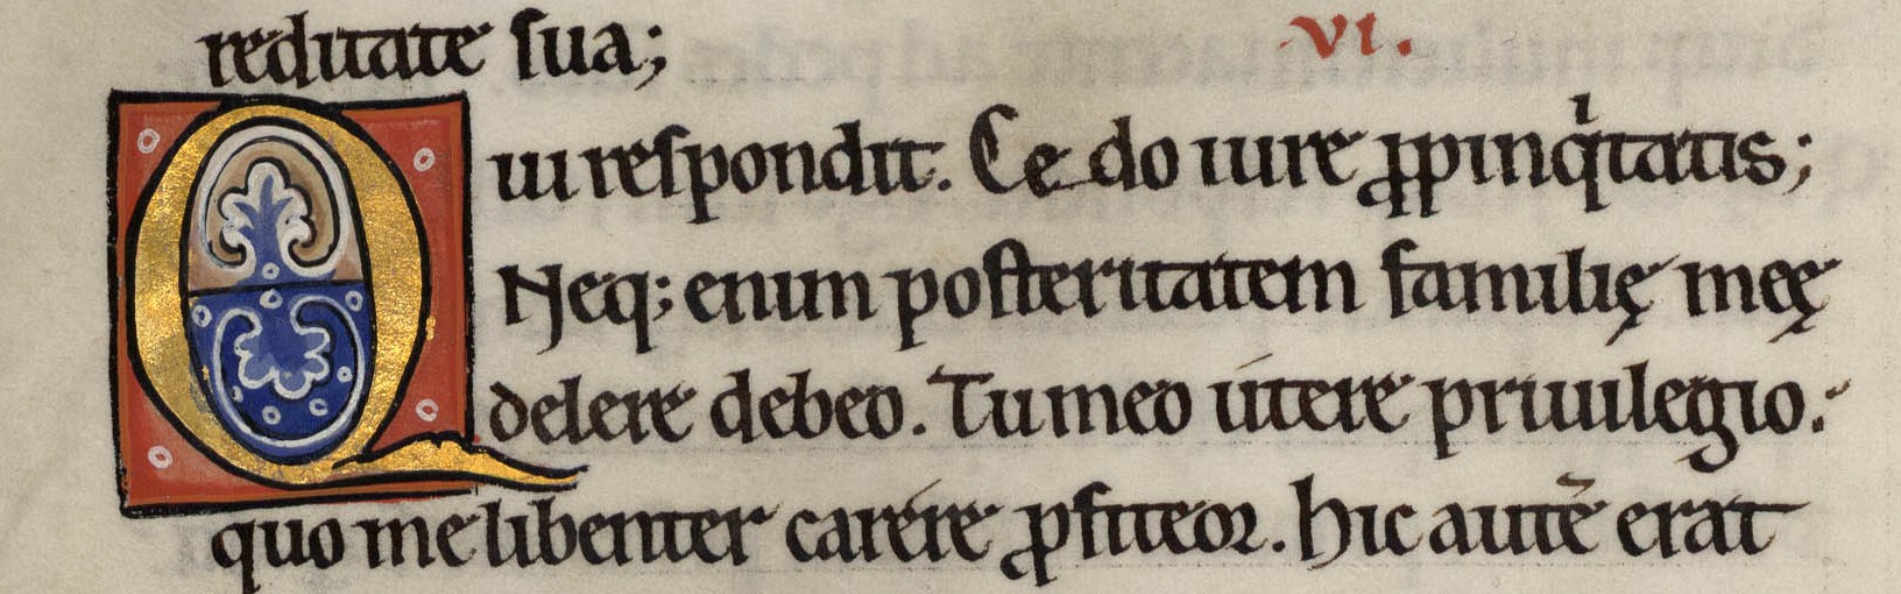 reditate sua;
VI.
Qui respondit. Cedo iure ꝓpinqͥtatis;
Neq; enim posteritatem familię meę
delere debeo. Tu meo utere priuilegio.
quo me libenter carére ꝓfiteor. hic autē erat